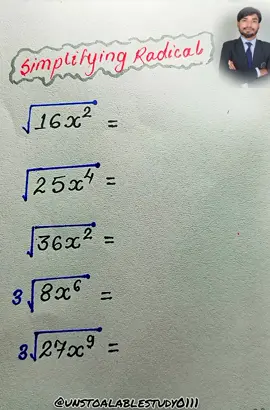 Simplifying Radical
√16x² =
√25x⁴ =
√36x² =
3√8x⁶ =
3√27x⁹ =
@UNSTOALABLESTUDY0111